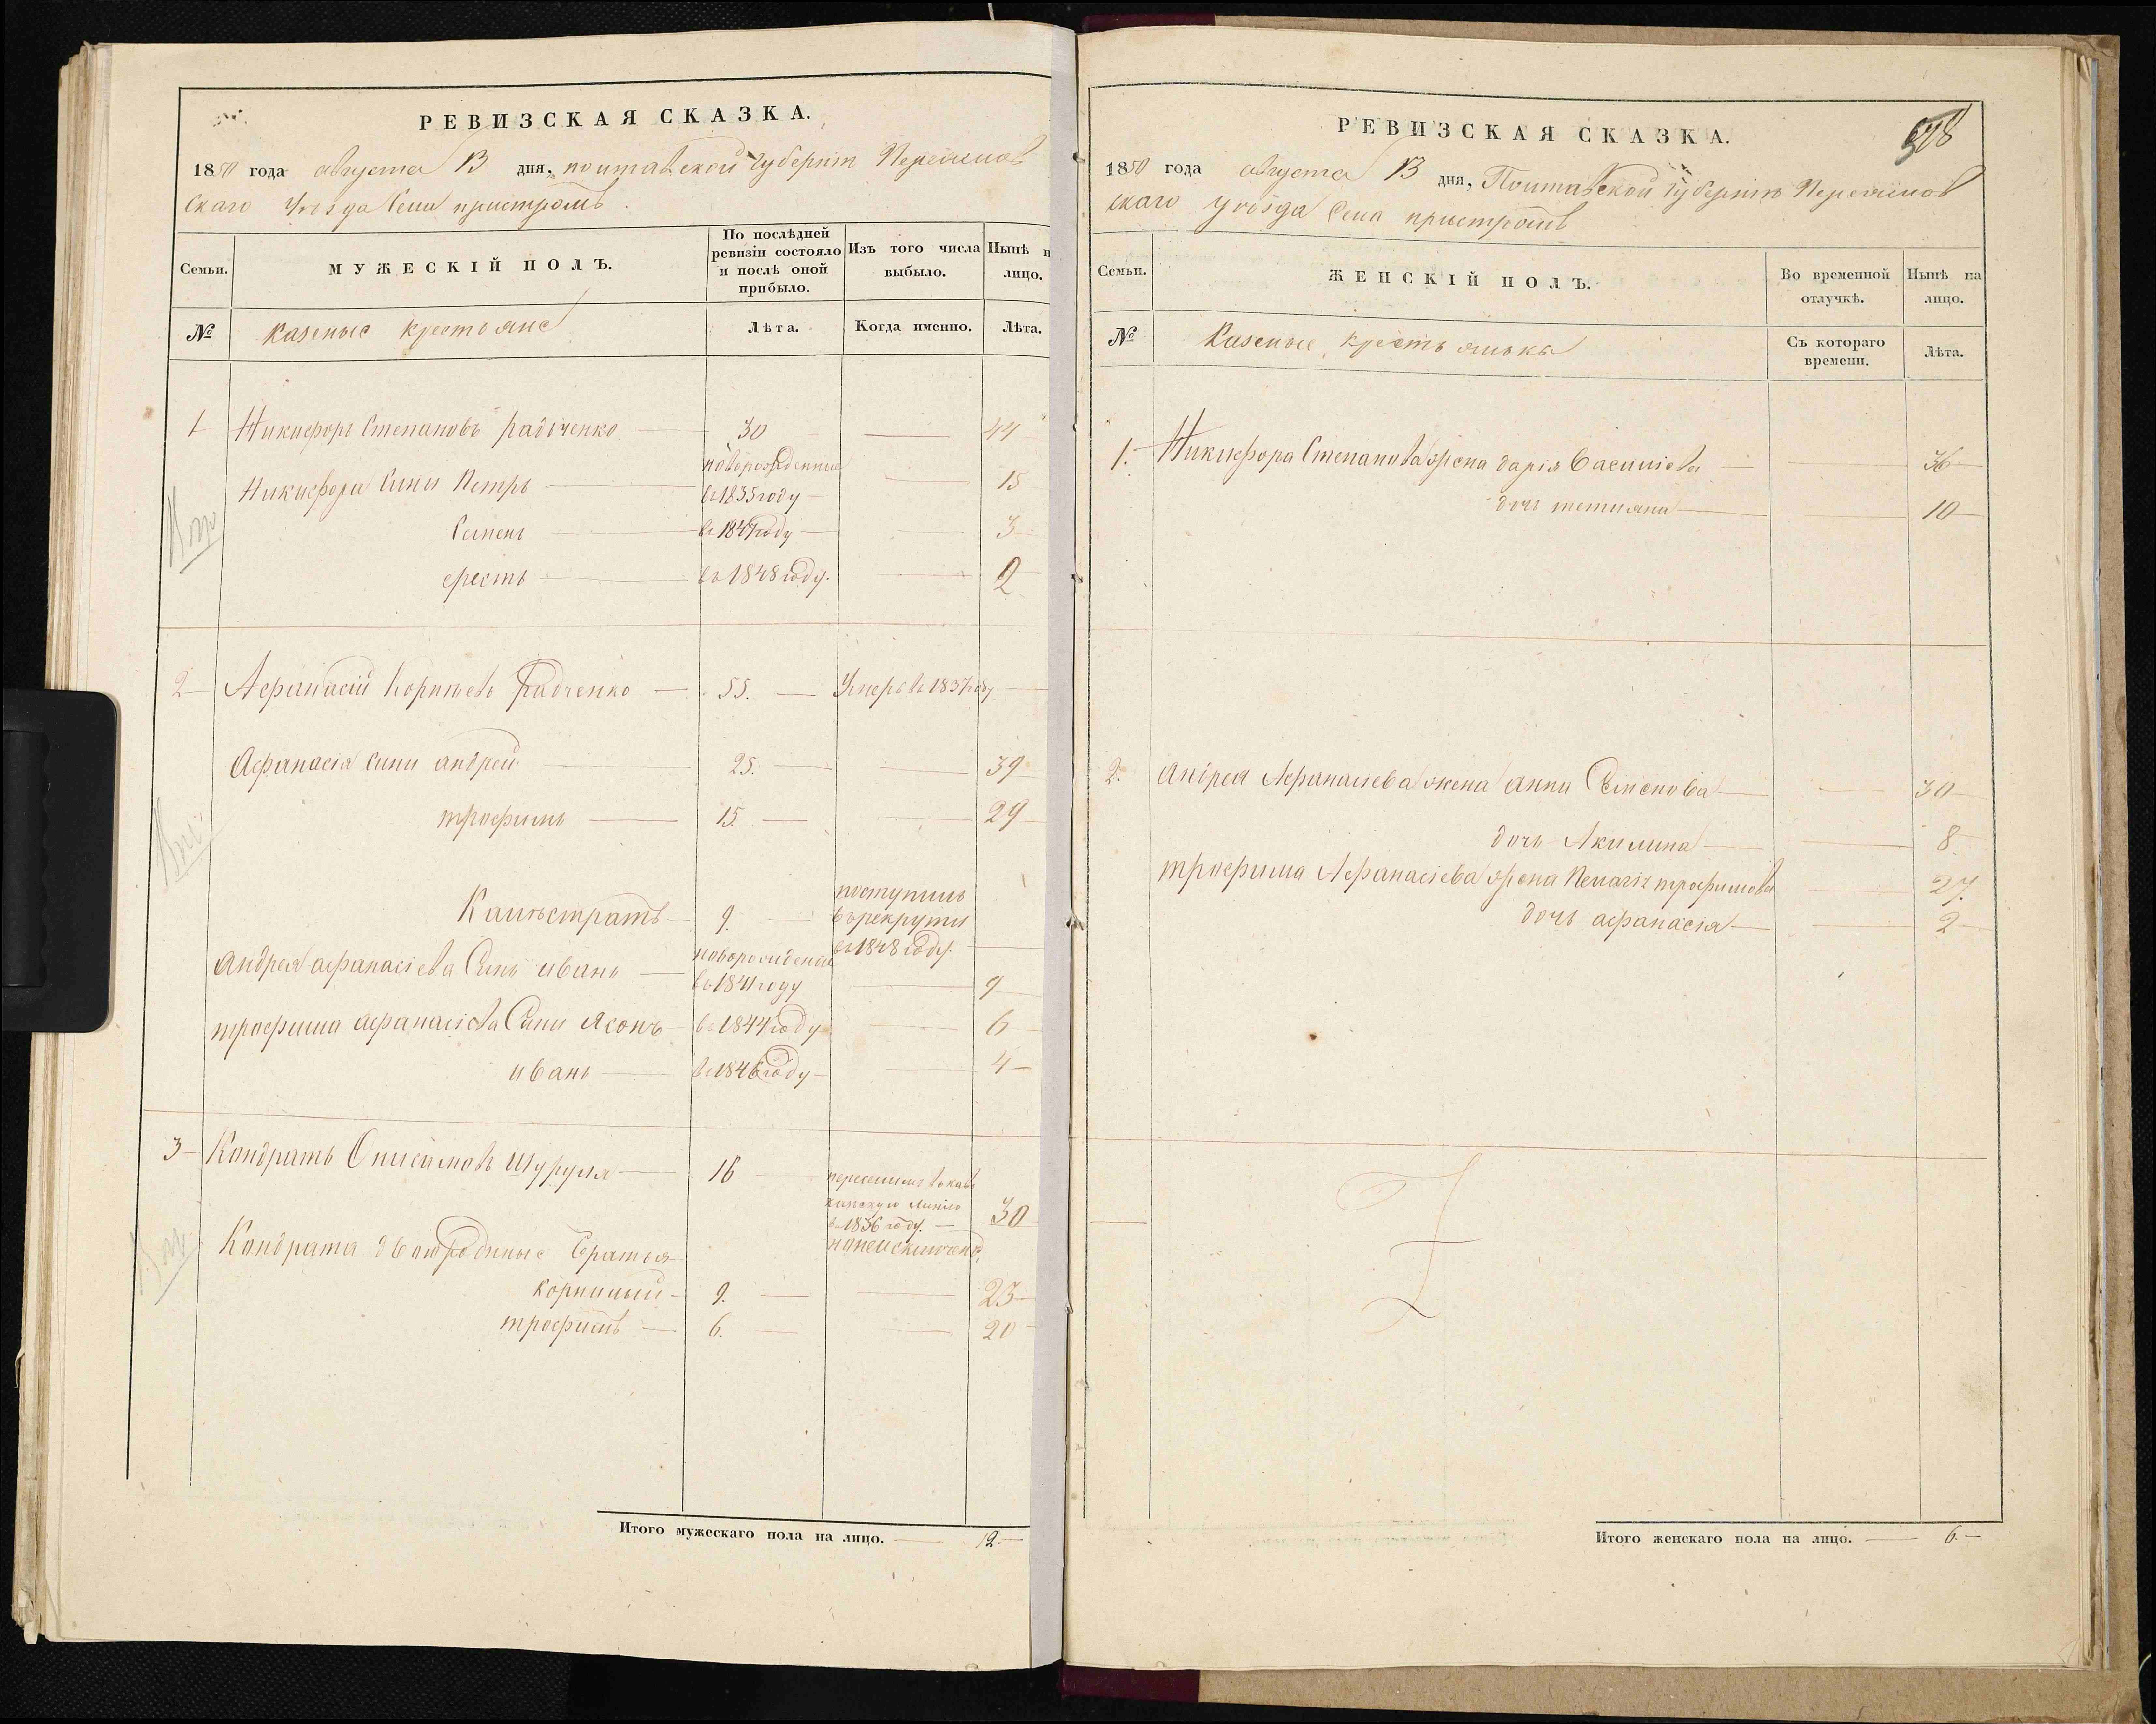 РЕВИЗСКАЯ СКАЗКА.
1850 года августа 13 дня, полтавской губерніи Переяслов
скаго уѣзда Села пристромъ
Семьи.
МУЖЕСКІЙ ПОЛЪ.
По послѣдней ревизіи состояло и послѣ оной прибыло.
Изъ того числа выбыло.
Нынѣ н лицо.
№
Казеные крестьяне
Лѣта.
Когда именно.
Лѣта.
1 Никифоръ Степановъ радченко 30 44
Никифора Сини Петръ новорожденные в 1835 году 15
Семенъ в 1847 году 3
въ 1848 году. 2
2 Афанасій Корнѣевъ Радченко 55. Умеръ въ 1837 году
Афанасія сини андрей 25. 39
трофимъ 15. 29
Калистратъ 9. поступилъ
въ рекруты
въ 1848 году.
андрея афанасіева Синъ иванъ новорожденые
въ 1841 году 9
трофима афанасіева Сини Ясонъ въ 1844 году 6
иванъ въ 1846 году 4
3 Кондратъ Онисимовъ Шуруля 16 переселился въ кав
казскую линію
в 1836 году. 30
Кондрата двоюродные братья
Корнилий 9. 23
трофимъ 6. 20
Итого мужескаго пола на лицо. 12.
РЕВИЗСКАЯ СКАЗКА.
508
1850 года августа 13 дня, Полтавской губерніи Переяслов
скаго уѣзда Села пристромъ
Семьи.
ЖЕНСКІЙ ПОЛЪ.
Во временной отлучкѣ.
Нынѣ на лицо.
№
Казеные крестьянька
Съ котораго времени.
Лѣта.
1. Никифора Степанова жена дарія Василіева 36
дочь тетияни 10
2. андрея Афанасіева жена анна Семенова 30
дочь Акилина 8
трофима Афанасіева жена Пелагія трофимова 27.
дочь афанасія 2
Итого женскаго пола на лицо. 6.